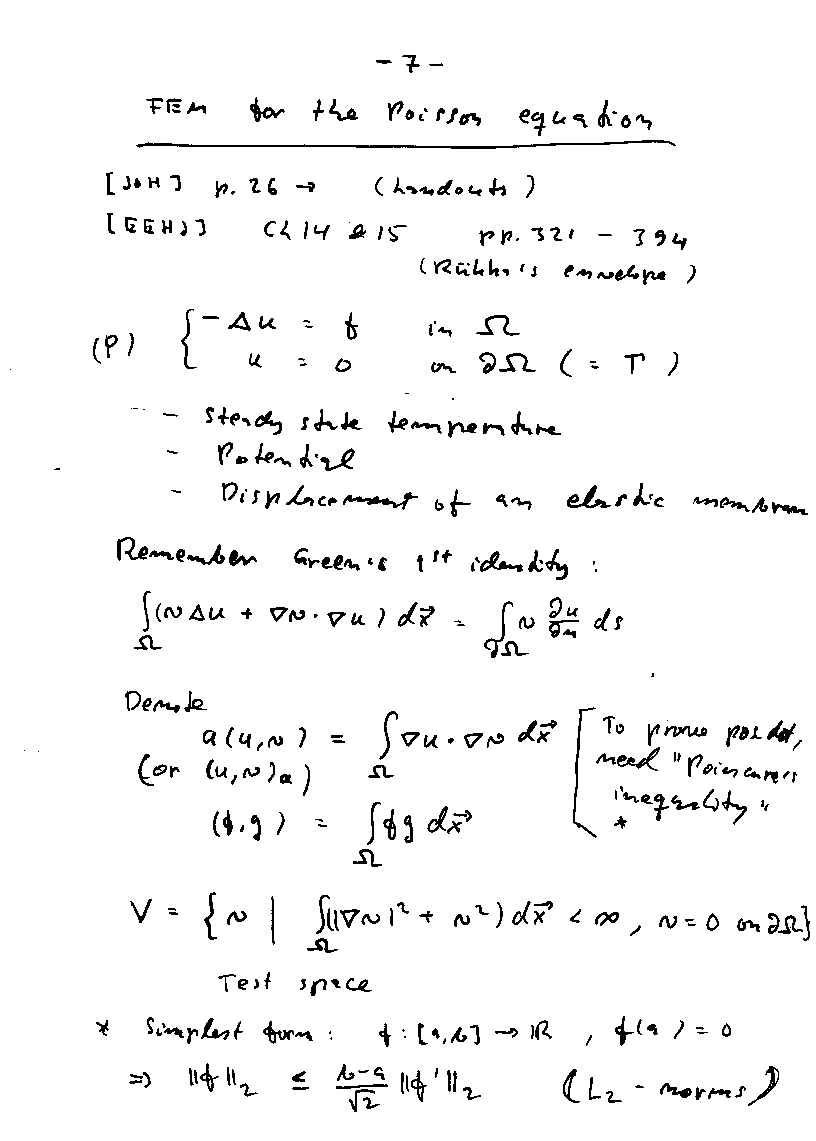 - 7 -
FEM for the Poisson equation
[JOH] p. 26 → (Handouts)
[EEHJ] Ch 14 & 15 pp. 321 - 394
(Rikku's envelope)
(P) { -Δu = f in Ω
u = 0 on ∂Ω (= Γ)
- Steady state temperature
- Potential
- Displacement of an elastic membran
Remember Green's 1st identity:
∫_Ω (v Δu + ∇v·∇u) dx⃗ = ∫_∂Ω v ∂u/∂n ds
Denote
a(u,v) = ∫_Ω ∇u·∇v dx⃗
(or (u,v)_a)
[ To prove pos def,
need "Poincare's
inequality"
*
(f,g) = ∫_Ω fg dx⃗
V = { v | ∫_Ω (|∇v|² + v²) dx⃗ < ∞, v = 0 on ∂Ω}
Test space
* Simplest form: f: [a,b] → ℝ, f(a) = 0
⇒ ||f||₂ ≤ (b-a)/√2 ||f'||₂ (L₂ - norms)